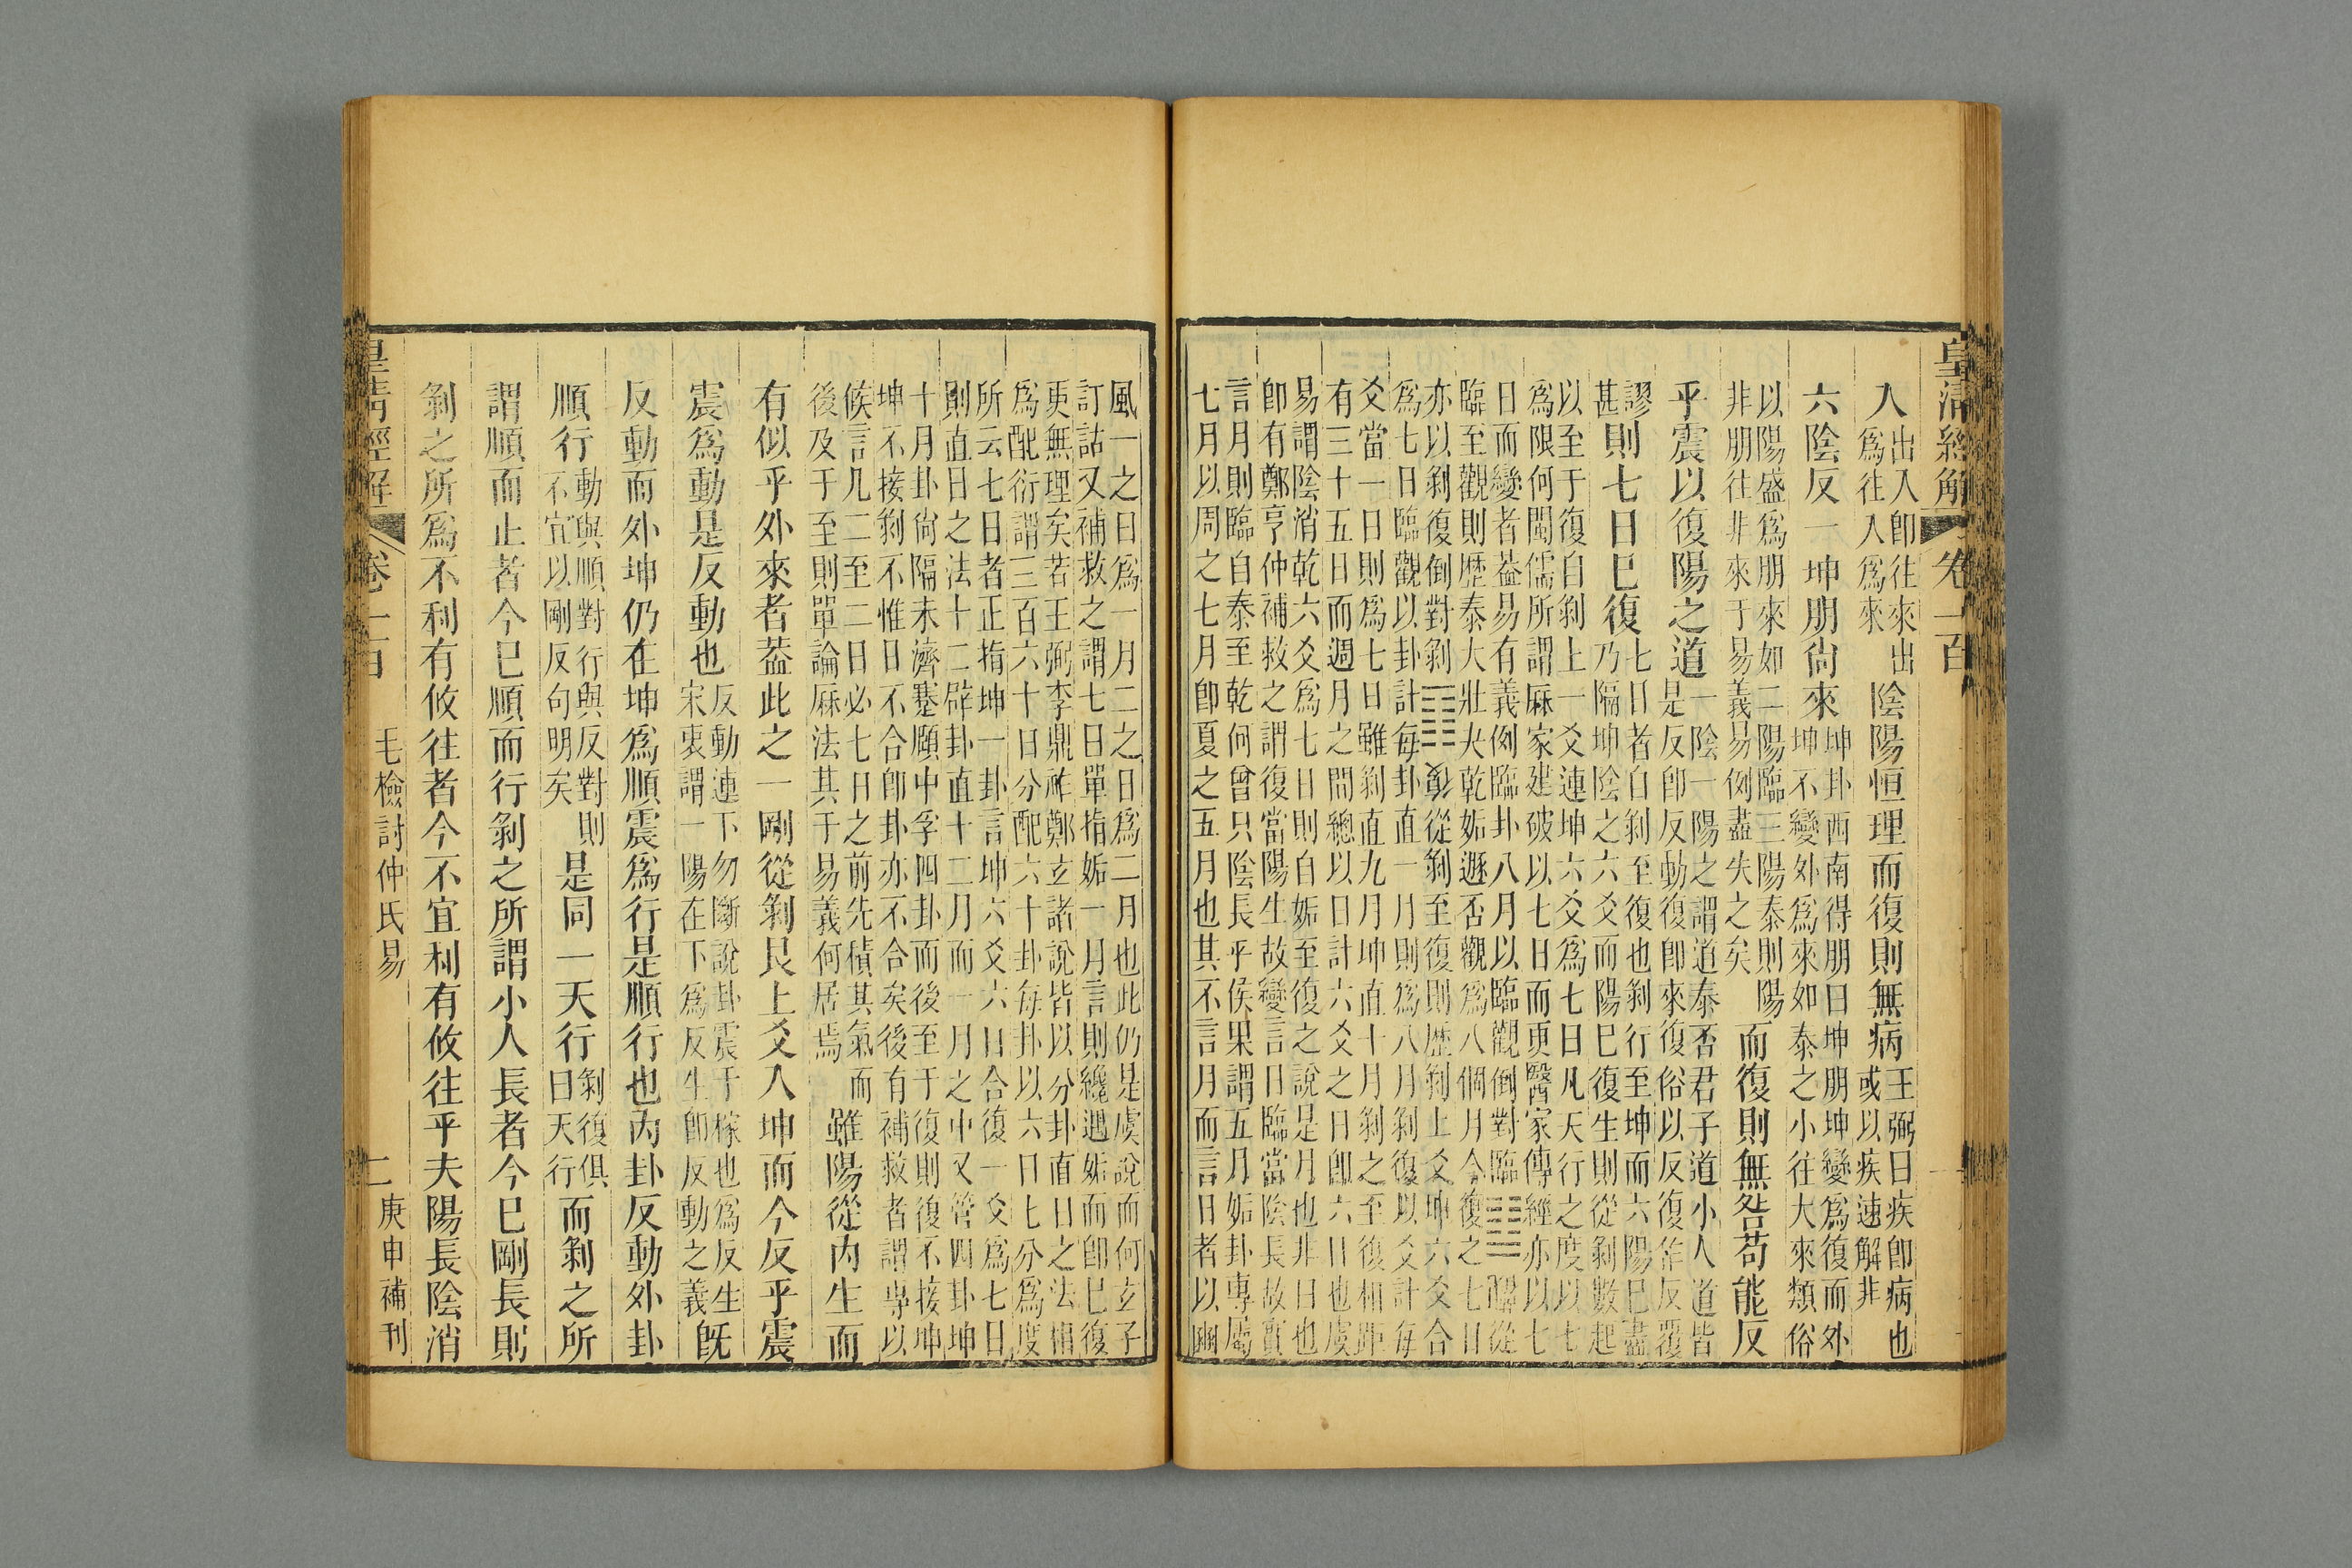 皇清經解 卷一百
入
出入卽往來出
爲往入爲來
陰陽恒理而復則無病
王弼曰疾卽病也
或以疾速解非
六陰反一坤朋尙來
坤卦西南得朋曰坤朋坤變爲復而外
坤不變外爲來如泰之小往大來類俗
以陽盛爲朋來如二陽臨三陽泰則陽
非朋往非來于易義易例盡失之矣
而復則無咎苟能反
乎震以復陽之道
一陰一陽之謂道泰否君子道小人道皆
是反卽反動復卽來復俗以反復作反覆
謬
甚
則七日已復
七日者自剝至復也剝行至坤而六陽已盡
乃隔坤陰之六爻而陽已復生則從剝數起
以至于復自剝上一爻連坤六爻爲七日凡天行之度以七
爲限何閩儒所謂厤家建破以七日而更醫家傳經亦以七
日而變者葢易有義例臨卦八月以臨觀倒對臨䷒從
臨至觀則歷泰大壯夬乾姤遯否觀爲八個月今復之七日
亦以剝復倒對剝䷖復從剝至復則歷剝上爻坤六爻合
爲七日臨觀以卦計每卦直一月則爲八月剝復以爻計每
爻當一日則爲七日雖剝直九月坤直十月剝之至復相距
有三十五日而週月之間總以日計六爻之日卽六日也虞
易謂陰消乾六爻爲七日則自姤至復之說是月也非日也
卽有鄭亨仲補救之謂復當陽生故變言日臨當陰長故實
言月則臨自泰至乾何曾只陰長乎侯果謂五月姤卦專屬
七月以周之七月卽夏之五月也其不言月而言日者以豳
風一之日爲一月二之日爲二月也此仍是虞說而何玄子
訂詁又補救之謂七日單指姤一月言則纔遇姤而卽已復
更無理矣若王弼李鼎祚鄭玄諸說皆以分卦直日之法
爲配衍謂三百六十日分配六十卦每卦以六日七分爲度
所云七日者正指坤一卦言坤六爻六日合復一爻爲七日
則直日之法十二辟卦直十二月而一月之中又管四卦坤
十月卦尙隔未濟蹇頤中孚四卦而後至于復則復不接坤
坤不接剝不惟日不合卽卦亦不合矣後有補救者謂專以
候言凡二至二日必七日之前先積其氣而
後及于至則單論厤法其于易義何居焉
雖陽從內生而
有似乎外來者葢此之一剛從剝艮上爻入坤而今反乎震
震爲動是反動也
反動連下勿斷說卦震于稼也爲反生
宋衷謂一陽在下爲反生卽反動之義
旣
反動而外坤仍在坤爲順震爲行是順行也內卦反動外卦
順行
動與順對行與反對則
不宜以剛反句明矣
是同一天行
剝復俱
曰天行
而剝之所
謂順而止者今已順而行剝之所謂小人長者今已剛長則
剝之所爲不利有攸往者今不宜利有攸往乎夫陽長陰消
皇清經解 卷一百 毛檢討仲氏易 二 庚申補刊